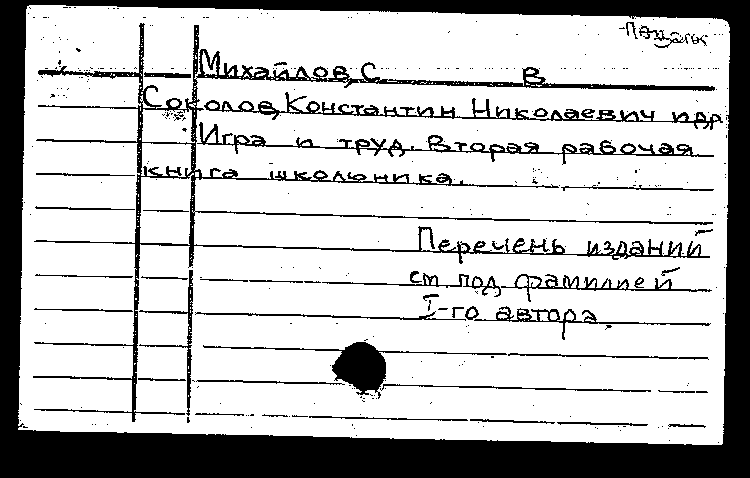 Михайлов, С. В
Соколов, Константин Николаевич и др
Игра и труд. Вторая рабочая
книга школьника.
Перечень изданий
см под фамилией
I-го автора.